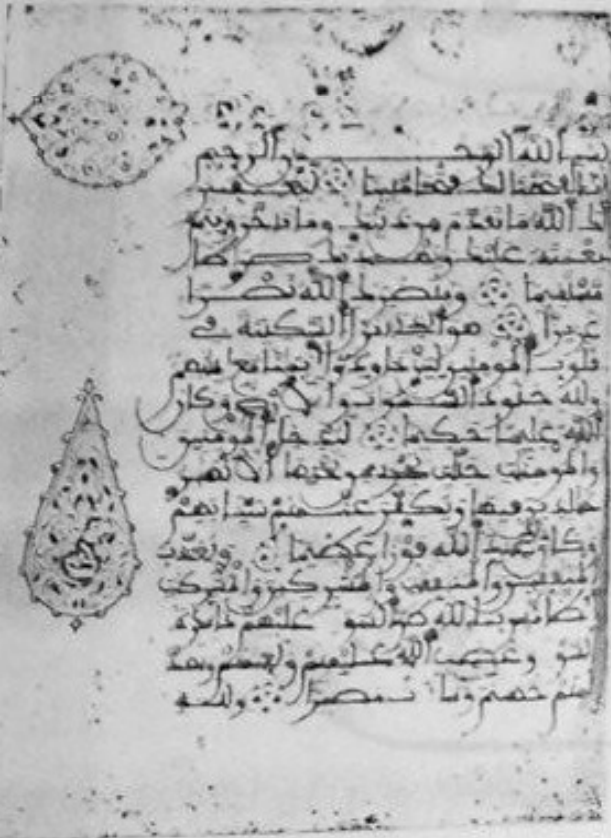 بسم الله الرحمن الرحيم
انا فتحنا لك فتحا مبينا ليغفر
لك الله ما تقدم من ذنبك وما تاخر ويتم
نعمته عليك ويهديك صراطا
مستقيما وينصرك الله نصرا
عزيزا هو الذي انزل السكينة في
قلوب المومنين ليزدادوا ايمنا مع ايمنهم
ولله جنود السموت والارض وكان
الله عليما حكيما ليدخل المومنين
والمومنت جنت تجري من تحتها الانهر
خلدين فيها ويكفر عنهم سياتهم
وكان ذلك عند الله فوزا عظيما ويعذب
المنفقين والمنفقت والمشركين والمشركت
الظانين بالله ظن السوء عليهم دايرة
السوء وغضب الله عليهم ولعنهم واعد
لهم جهنم وساءت مصيرا ولله